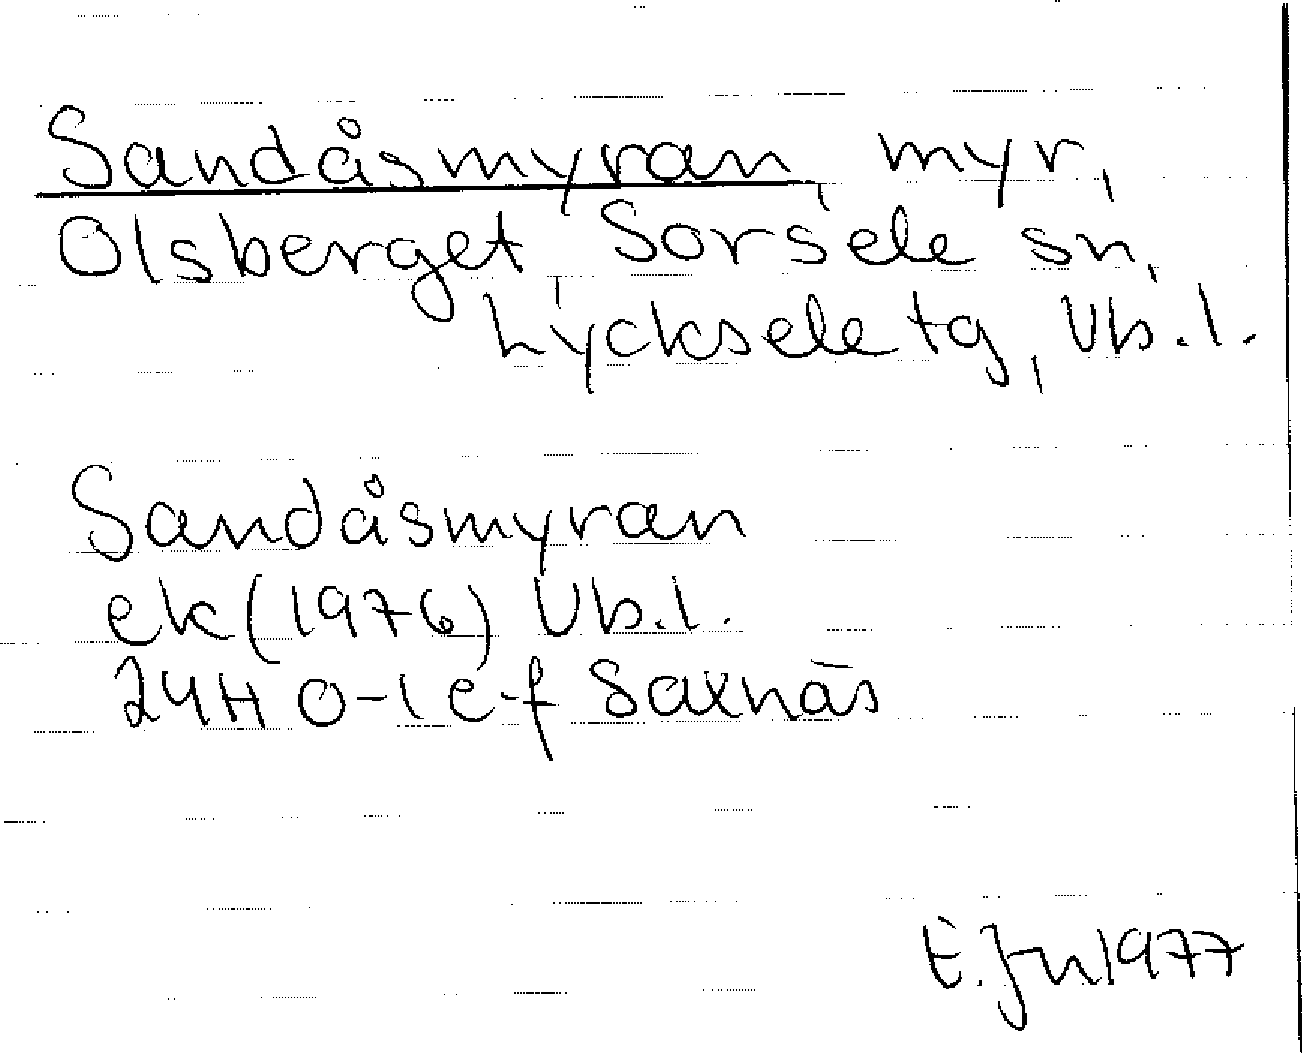 Sandåsmyran, myr,
Olsberget, Sorsele sn,
Lycksele tg, Vb.l.
Sandåsmyran
ek (1976) Vb.l.
24H 0-1 e-f Saxnäs
E. Jn 1977